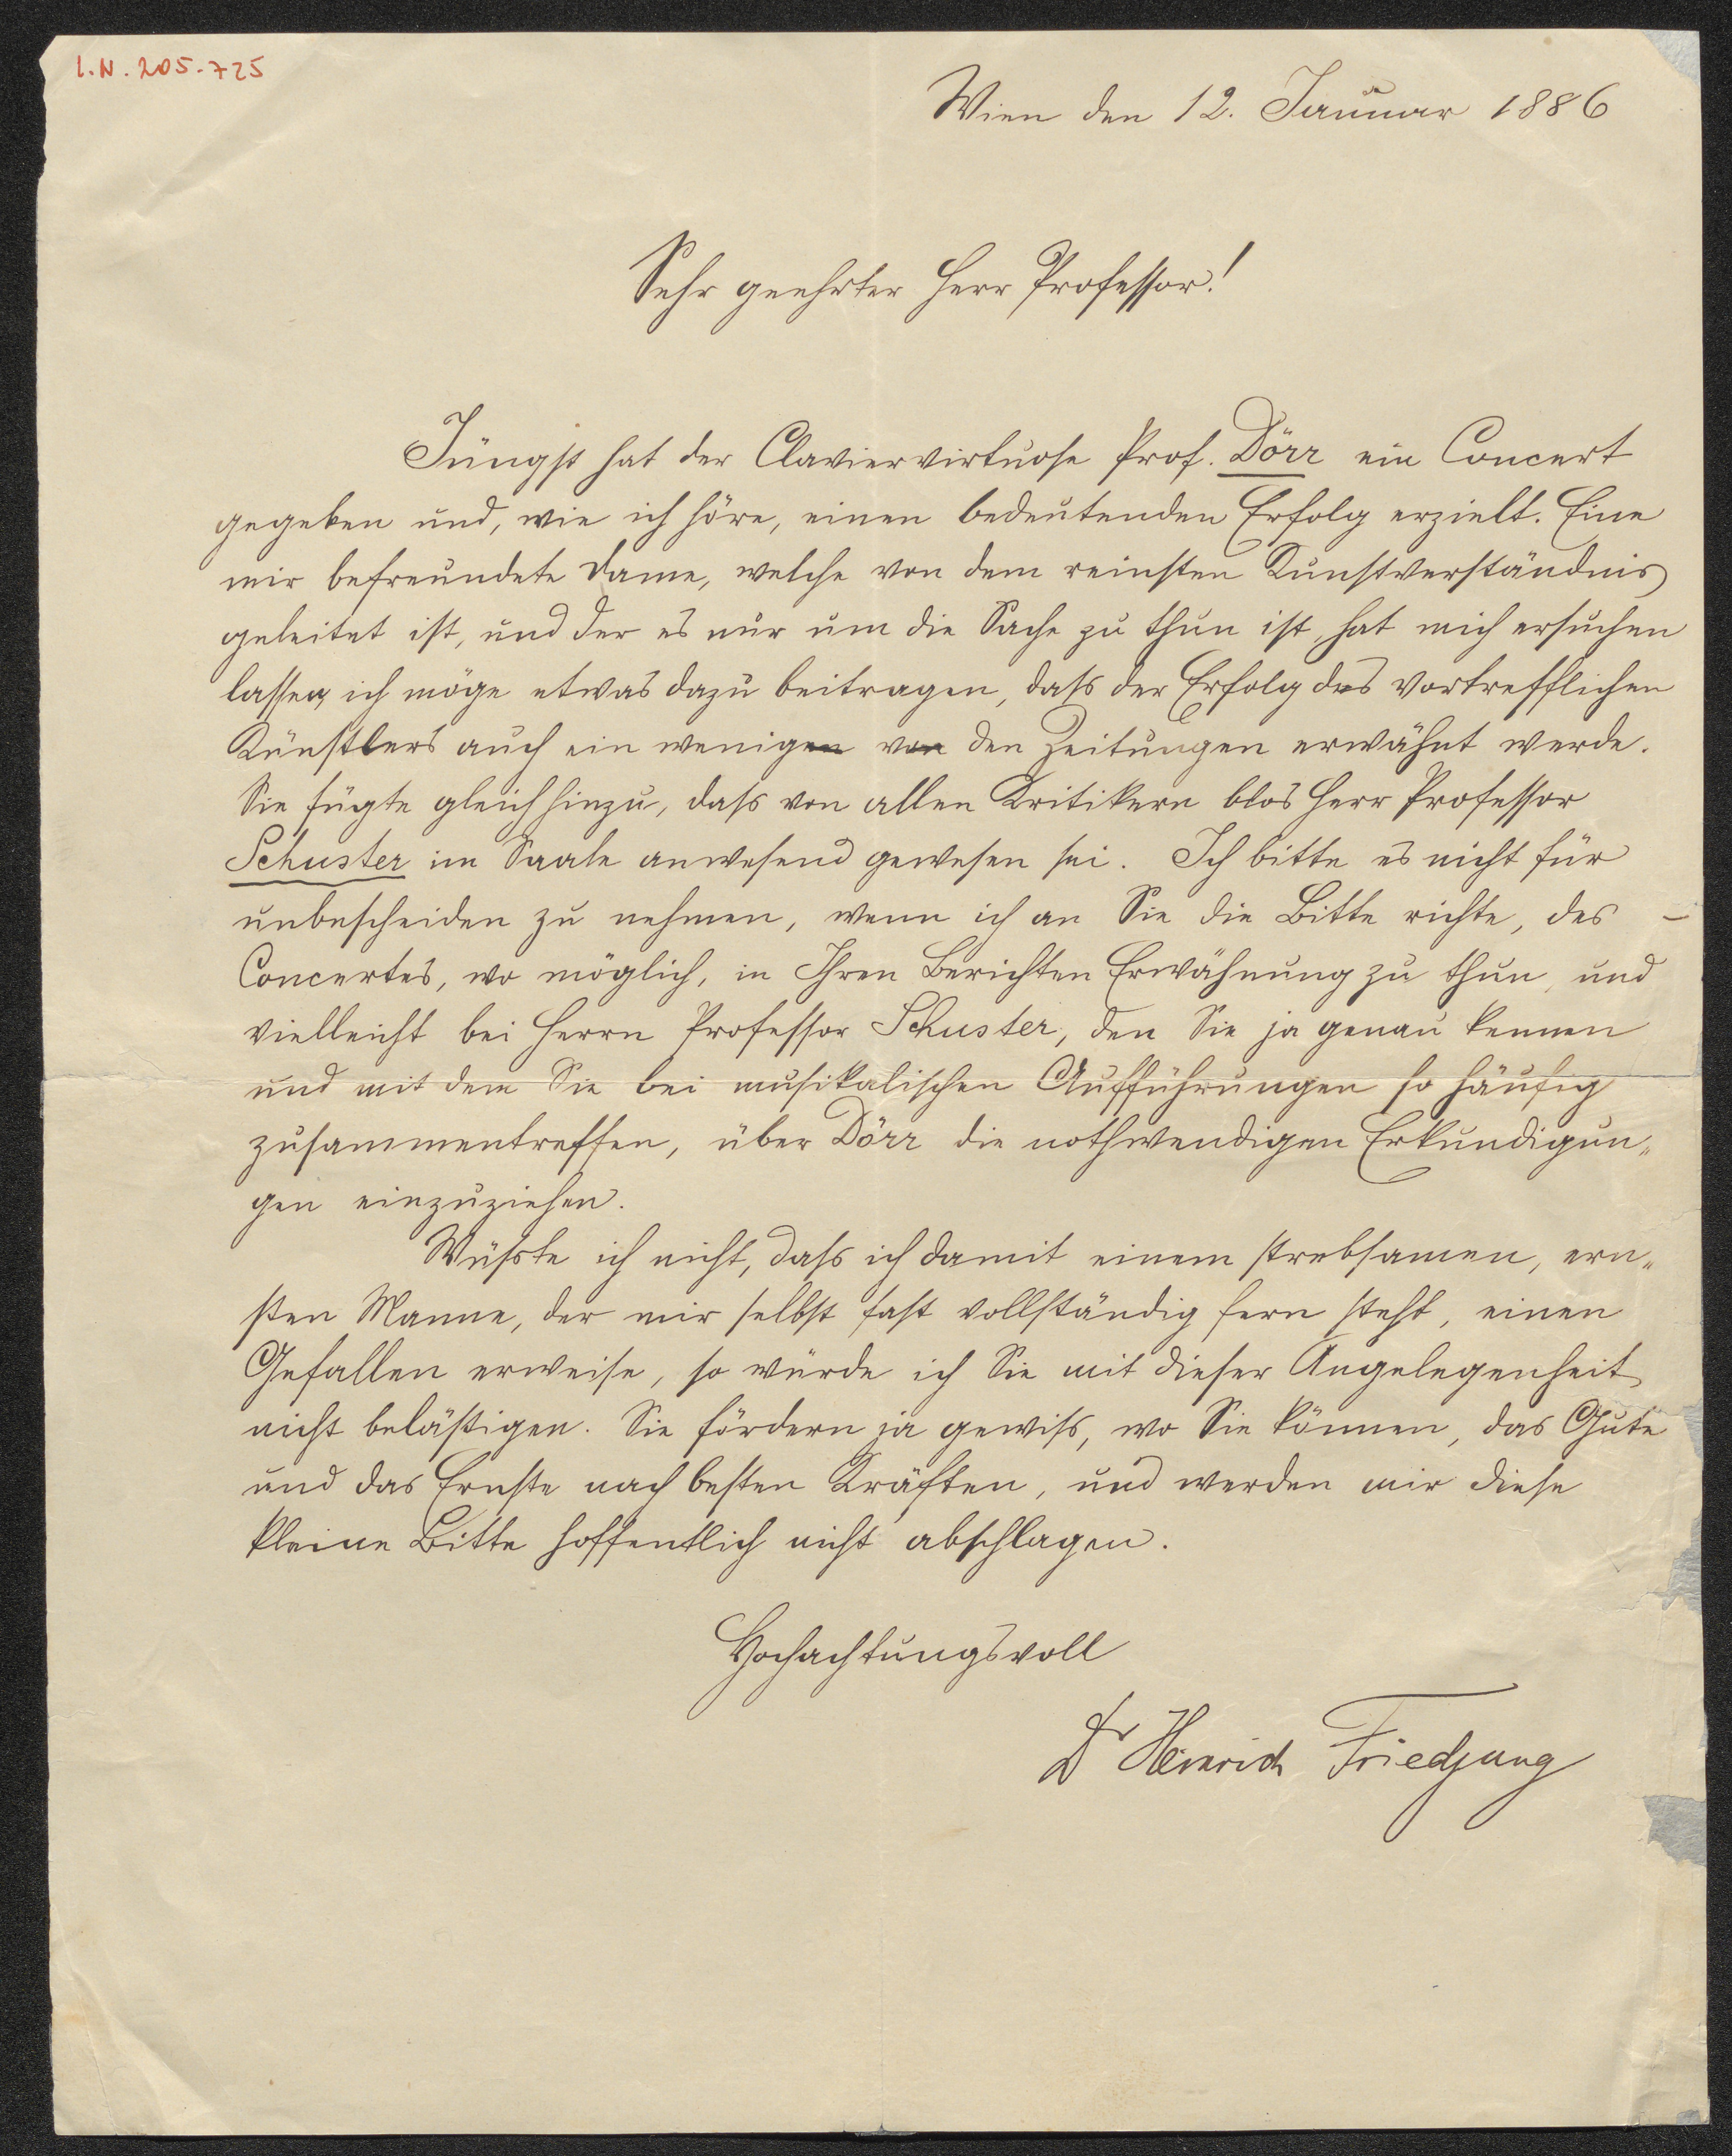 I.N. 205.725
Wien den 12. Januar 1886
Sehr geehrter Herr Professor!
Jüngst hat der Claviervirtuose Prof. Dörr ein Concert
gegeben und, wie ich höre, einen bedeutenden Erfolg erzielt. Eine
mir befreundete Dame, welche von dem reinsten Kunstverständnis
geleitet ist, und der es nur um die Sache zu thun ist, hat mich ersuchen
lassen, ich möge etwas dazu beitragen, daß der Erfolg des vortrefflichen
Künstlers auch ein wenigen von den Zeitungen erwähnt werde.
Sie fügte gleich hinzu, daß von allen Kritikern blos Herr Professor
Schuster im Saale anwesend gewesen sei. Ich bitte es nicht für
unbescheiden zu nehmen, wenn ich an Sie die Bitte richte, des
Concertes, wo möglich, in Ihren Berichten Erwähnung zu thun, und
vielleicht bei Herrn Professor Schuster, den Sie ja genau kennen
und mit dem Sie bei musikalischen Aufführungen so häufig
zusammentreffen, über Dörr die nothwendigen Erkundigun„
gen einzuziehen.
Wüßte ich nicht, daß ich damit einem strebsamen, ern„
sten Manne, der mir selbst fast vollständig fern steht, einen
Gefallen erweise, so würde ich Sie mit dieser Angelegenheit
nicht belästigen. Sie fördern ja gewiß, wo Sie können, das Gute
und das Ernste nach besten Kräften, und werden mir diese
kleine Bitte hoffentlich nicht abschlagen.
Hochachtungsvoll
Dr Heinrich Friedjung